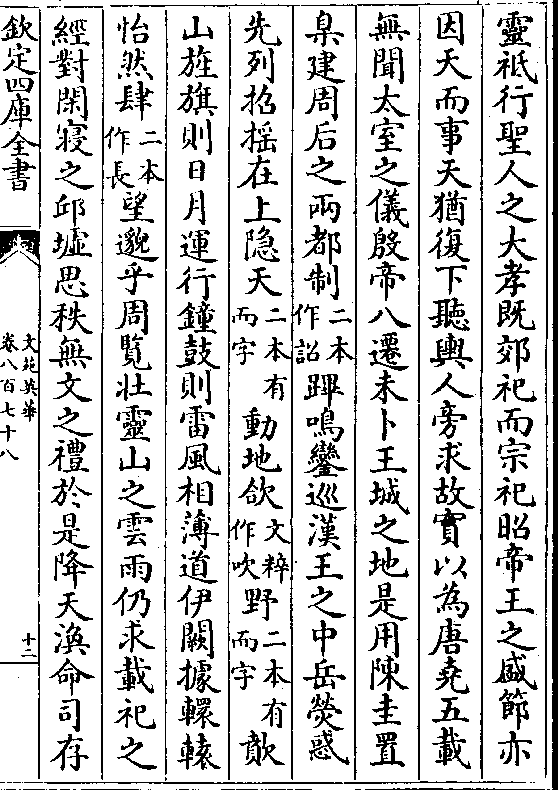 靈祗行聖人之大孝既郊祀而宗祀昭帝王之盛節亦
因天而事天猶復下聽輿人旁求故實以為唐堯五載
無聞太室之儀殷帝八遷未卜王城之地是用陳圭置
臬建周后之兩都制二本作詔蹕鳴鑾巡漢王之中岳熒惑
先列招搖在上隐天二本有而字動地欱文粹作吹野二本有而字歕
山旌旗則日月運行鐘鼓則雷風相薄道伊闕據轘轅
怡然肆二本作長望邈乎周覽壯靈山之雲雨仍求載祀之
經對閑寢之邱墟思秩無文之禮於是降天渙命司存
欽定四庫全書
文苑英華
卷八百七十八
十二